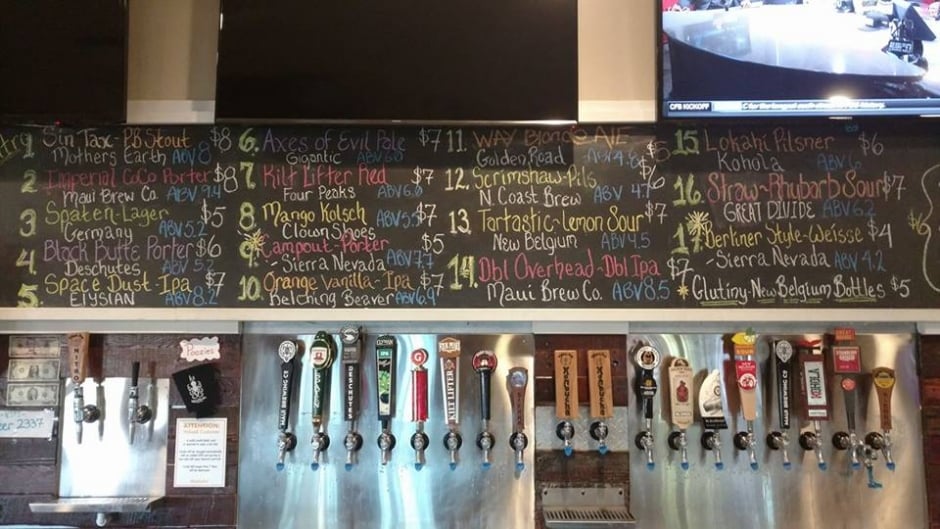 CFB KICKOFF
1 Sin Tax - PB Stout $8
Mothers Earth ABV 8
2 Imperial CoCo Porter $8
Maui Brew Co. ABV 9.4
3 Spaten-Lager $5
Germany ABV 5.2
4. Black Butte Porter $6
Deschutes ABV 5.2
5. Space Dust-Ipa $7
Elysian ABV 8.2
6. Axes of Evil Pale $7
Gigantic ABV
7. Kilt Lifter Red $7
Four Peaks ABV
8 Mango Kolsch $7
Clown Shoes ABV
9. Campout-Porter $5
- Sierra Nevada ABV 7.7
10. Orange Vanilla-Ipa $7
Belching Beaver ABV 6.9
11. WAY Blonde ALE $5
Golden Road ABV
12. Scrimshaw-Pils $6
N. Coast Brew ABV 4.7
13. Tartastic-Lemon Sour $7
New Belgium ABV 4.5
14. Dbl Overhead-Dbl Ipa $7
Maui Brew Co. ABV 8.5
15. Lokahi Pilsner $6
Kohola ABV
16. Straw-Rhubarb Sour $7
GREAT DIVIDE ABV 6.2
17 Berliner Style-Weisse $4
- Sierra Nevada ABV 4.2
Glutiny-New Belgium Bottles $5
NITRO
Poozies
2337
ATTENTION:
MAUI BREWING CO
DESCHUTES
IPA
KILT LIFTER
Kombucha
Kombucha
MAUI BREWING CO
KOHOLA